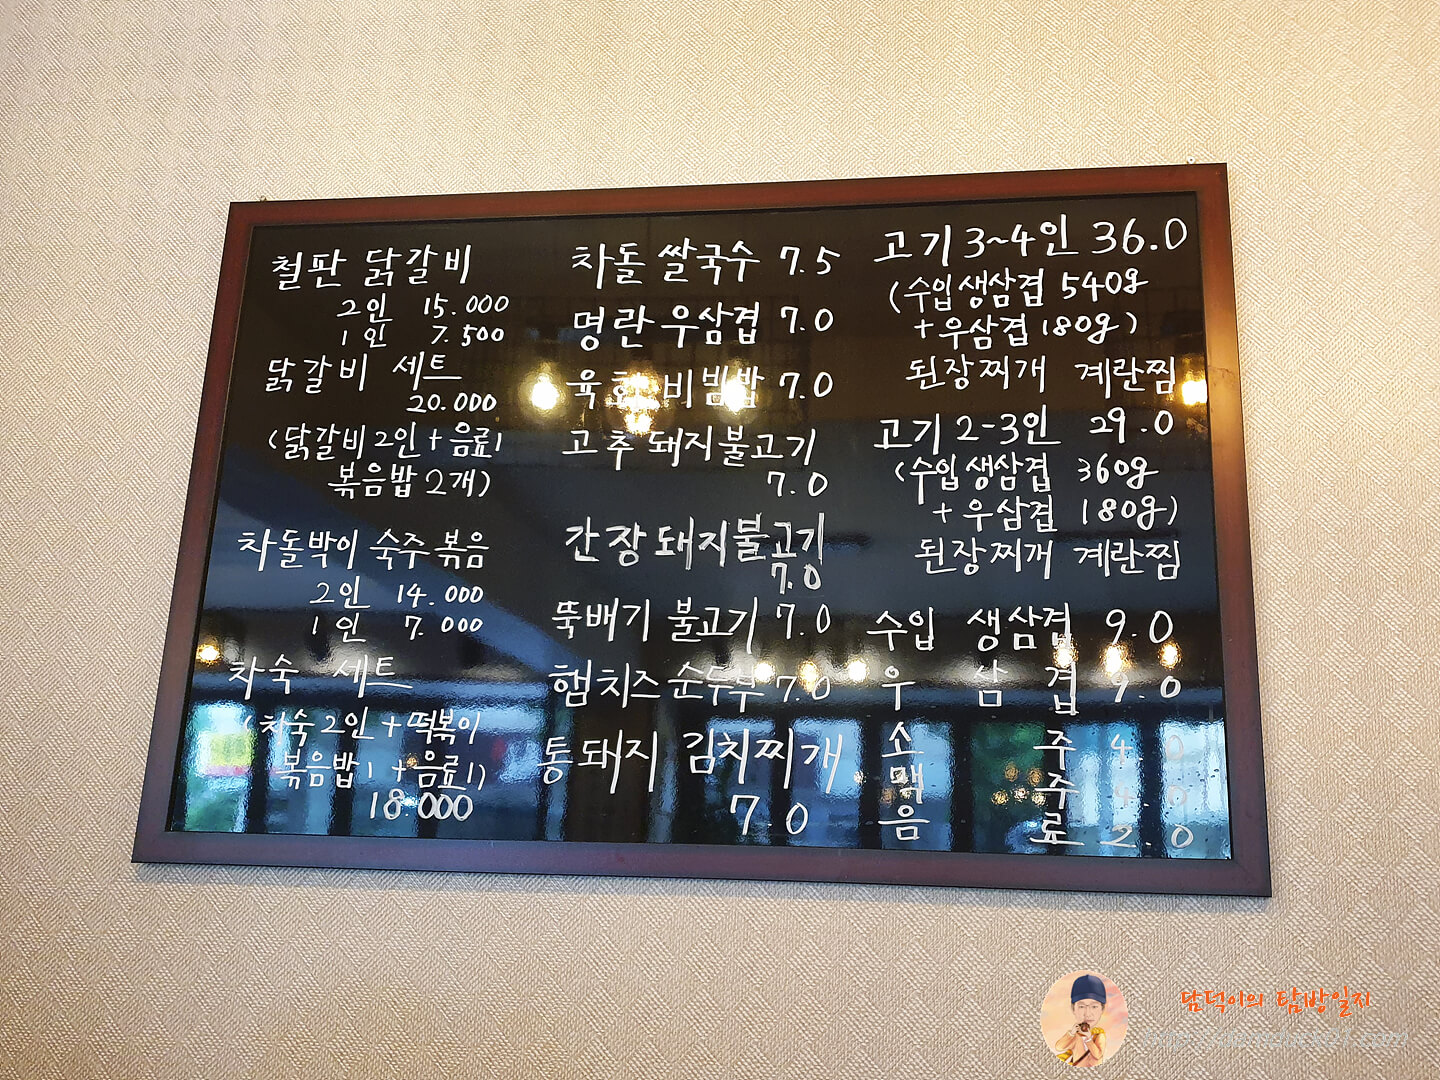 철판 닭갈비
2인 15.000
1인 7.500
닭갈비 세트
20.000
(닭갈비2인+음료1
볶음밥2개)
차돌박이 숙주볶음
2인 14.000
1인 7.000
차숙 세트
(차숙2인+떡볶이
볶음밥1+음료1)
18.000
차돌쌀국수 7.5
명란우삼겹 7.0
육회비빔밥 7.0
고추돼지불고기
7.0
간장돼지불고기
7.0
뚝배기 불고기 7.0
햄치즈순두부 7.0
통돼지 김치찌개
7.0
고기3~4인 36.0
(수입생삼겹 540g
+우삼겹180g)
된장찌개 계란찜
고기2-3인 29.0
(수입생삼겹 360g
+우삼겹 180g)
된장찌개 계란찜
수입 생삼겹 9.0
우삼겹 9.0
소주 4.0
맥주 4.0
음료 2.0
담덕이의 탐방일지